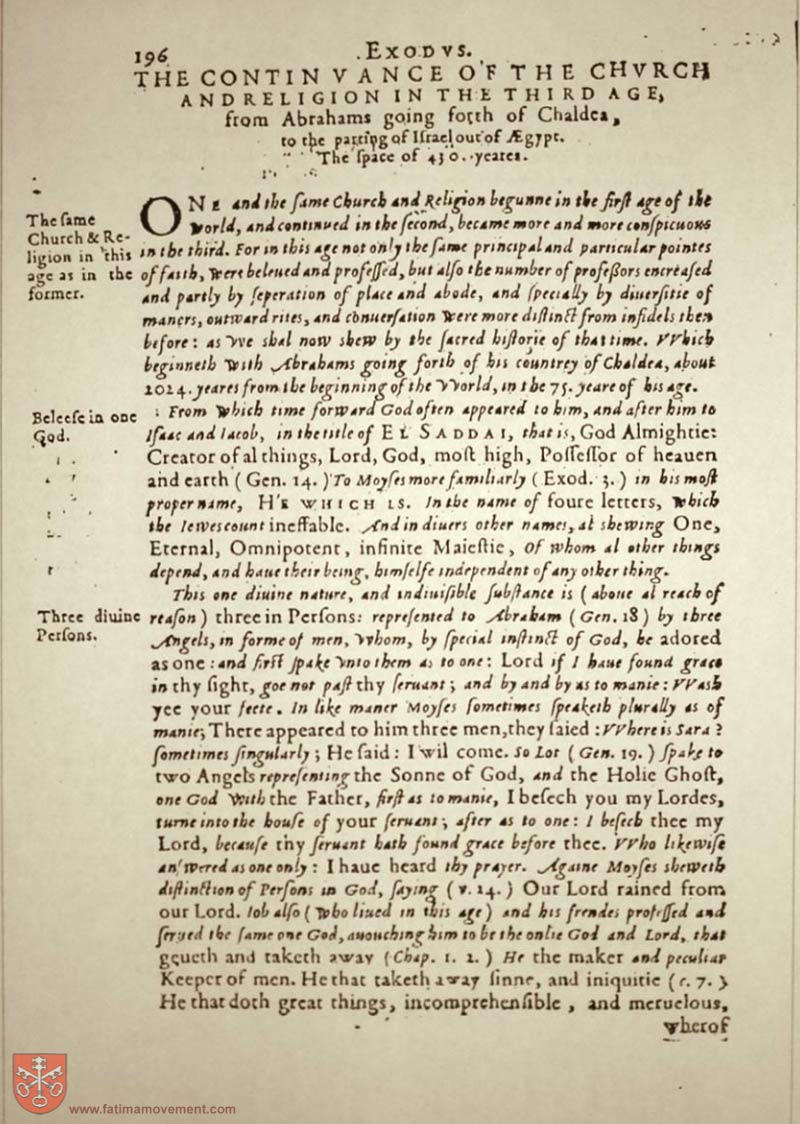 196 .EXODVS.
THE CONTINVANCE OF THE CHVRCH
AND RELIGION IN THE THIRD AGE,
from Abrahams going forth of Chaldea,
to the parting of Iſrael out of Ægypt.
The ſpace of 430. yeares.
The ſame
Church & Re-
ligion in this
age as in the
former.
ONE and the ſame Church and Religion begunne in the firſt age of the
world, and continued in the ſecond, became more and more conſpicuous
in the third. For in this age not only the ſame principal and particular pointes
of faith, were beleued and profeſſed, but alſo the number of profeſſors encreaſed
and partly by ſeperation of place and abode, and ſpecially by diuerſitie of
maners, outward rites, and conuerſation were more diſtinct from infidels then
before: as we shal now shew by the ſacred hiſtorie of that time. VVhich
beginneth with Abrahams going forth of his countrey of Chaldea, about
2024. yeares from the beginning of the VVorld, in the 75. yeare of his age.
Beleefe in one
God.
From which time forward God often appeared to him, and after him to
Iſaac and Iacob, in the title of EL SADDAI, that is, God Almightie:
Creator of al things, Lord, God, moſt high, Poſſeſſor of heauen
and earth (Gen. 14.) To Moyſes more familiarly (Exod. 3.) in his moſt
proper name, HE WHICH IS. In the name of foure letters, which
the Iewes count ineffable. And in diuers other names, al shewing One,
Eternal, Omnipotent, infinite Maieſtie, Of whom al other things
depend, and haue their being, himſelfe independent of any other thing.
Three diuine
Perſons.
This one diuine nature, and indiuiſible ſubſtance is (aboue al reach of
reaſon) three in Perſons: repreſented to Abraham (Gen. 18) by three
Angels, in forme of men, whom, by ſpecial inſtinct of God, he adored
as one: and firſt ſpake vnto them as to one: Lord if I haue found grace
in thy ſight, goe not paſt thy ſeruant; and by and by as to manie: VVash
yee your feete. In like maner Moyſes ſometimes ſpeaketh plurally as of
manie; There appeared to him three men, they ſaied: VVhere is Sara?
ſometimes ſingularly; He ſaid: I wil come. So Lot (Gen. 19.) ſpake to
two Angels repreſenting the Sonne of God, and the Holie Ghoſt,
one God with the Father, firſt as to manie, I beſech you my Lordes,
turne into the houſe of your ſeruant; after as to one: I beſech thee my
Lord, becauſe thy ſeruant hath found grace before thee. VVho likewiſe
anſwered as one only: I haue heard thy prayer. Againe Moyſes sheweth
diſtinction of Perſons in God, ſaying (v. 24.) Our Lord rained from
our Lord. Iob alſo (who liued in this age) and his frendes profeſſed and
ſerued the ſame one God, auouching him to be the onlie God and Lord, that
geueth and taketh away (Chap. 1. 2.) He the maker and peculiar
Keeper of men. He that taketh away ſinne, and iniquitie (c. 7.)
He that doth great things, incomprehenſible, and meruelous,
wherof
www.fatimamovement.com